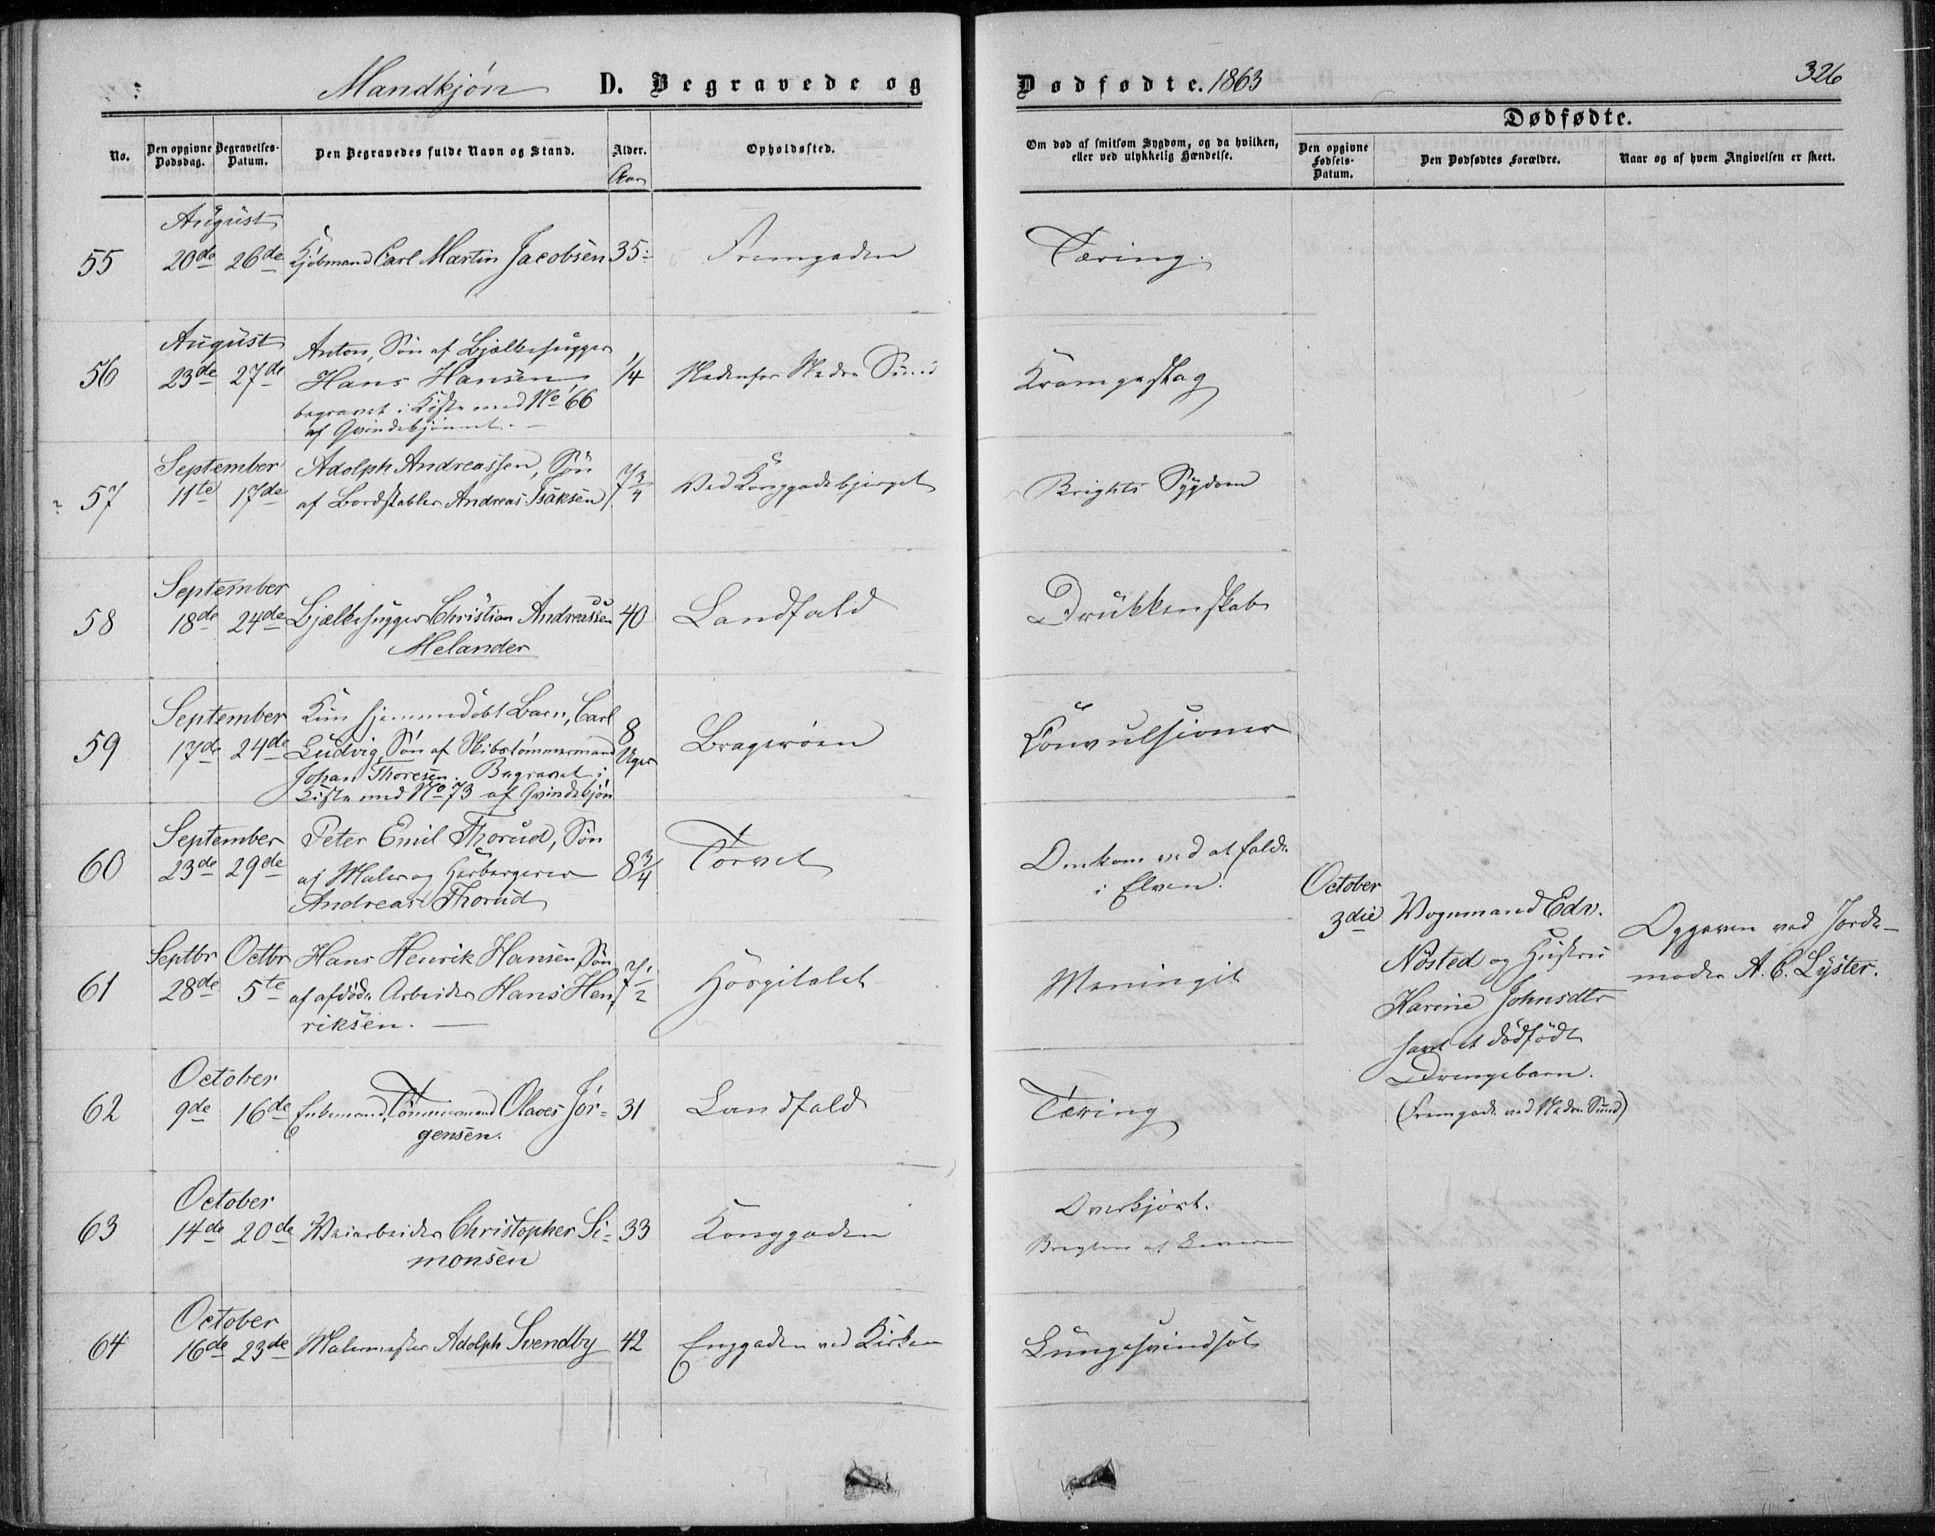 Mandkjøn D. Begravede og
Dødfødte. 1863
326
No.
Den opgivne Dødsdag.
Begravelses-Datum.
Den Begravedes fulde Navn og Stand.
Alder.
Aar
Opholdssted.
Om død af smitsom Sygdom, og da hvilken, eller ved ulykkelig Hændelse.
Dødfødte.
Den opgivne Fødsels-Datum.
Den Dødfødtes Forældre.
Naar og af hvem Angivelsen er skeet.
August
55 20de 26de Kjøbmand Carl Martin Jacobsen 35 Fremgaden Tæring.
August
56 23de 27de Anton, Søn af Bjælkehugger
Hans Hansen, 1/4 Nedenfor Nedre Sund Krampeslag
begravet i Kiste med No 66
af Qvindekjønnet.
September
57 11te 17de Adolph Andreassen, Søn
af Bordstabler Andreas Isaksen 7 3/4 Ved Konggadebjerget Brights Sygdom
September
58 18de 24de Bjælkehugger Christian Andreassen 40 Landfald Drukkenskab
Melander
September
59 17de 24de Kun hjemmedøbt Barn, Carl
Ludvig, Søn af Skibstømmermand 8 Uger Bragerøen Convulsioner
Johan Thoresen. Begravet i
Kiste med No 73 af Qvindekjøn
September
60 23de 29de Peter Emil Thorud, Søn
af Maler og Herbergerer 8 3/4 Torvet Omkom ved at falde
i Elven.
Andreas Thorud
Septbr Octbr
61 28de 5te Hans Henrik Hansen, Søn
af afdøde Arbeider Hans Hen 7 1/2 Hospitalet Meningit
riksen.
October
62 9de 16de Enkemand, Tømmermand Olaves Jør= 31 Landfald Tæring
gensen.
October
63 14de 20de Veiarbeider Christopher Si= 33 Konggaden Overkjørt.
monsen
Bristen af Leveren
October
64 16de 23de Malermester Adolph Svendby 42 Enggaden ved Kirken Lungesvindsot
October
3die Vognmand Edv.
Nøsted og Hustru
Karine Johnsdtr
havt et dødfødt
Drengebarn.
(Fremgade ved Nedre Sund)
Opgaven ved Jorde-
moder A. C. Lyster.